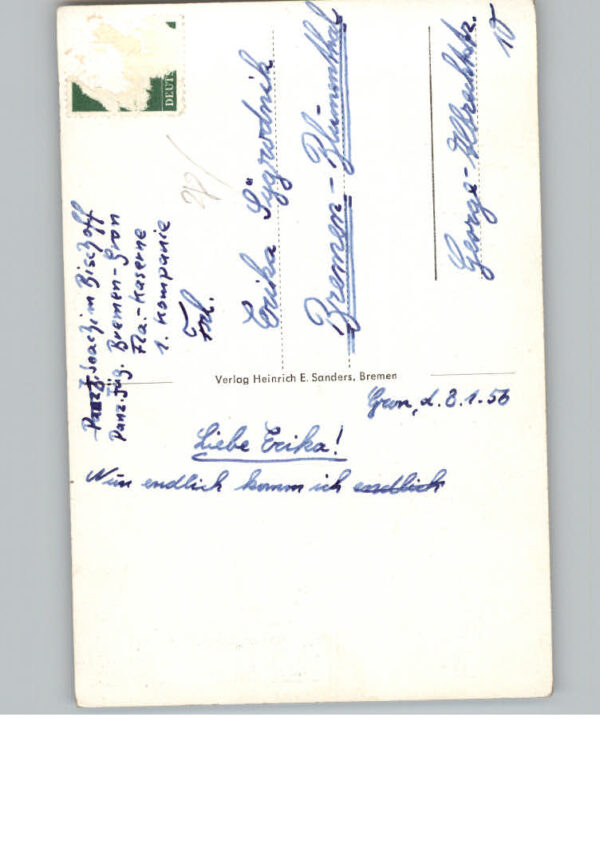 DEUTS
Panz.Jäg. Joachim Bischoff
Panz.Jäg. Bremen-Gron
Fla.-Kaserne
1. Kompanie
Frl.
Erika
Bremen-Blumenthal
George-Albrechtstr.
10
Verlag Heinrich E. Sanders, Bremen
Gron, d. 8.1.56
Liebe Erika!
Nun endlich komm ich endlich